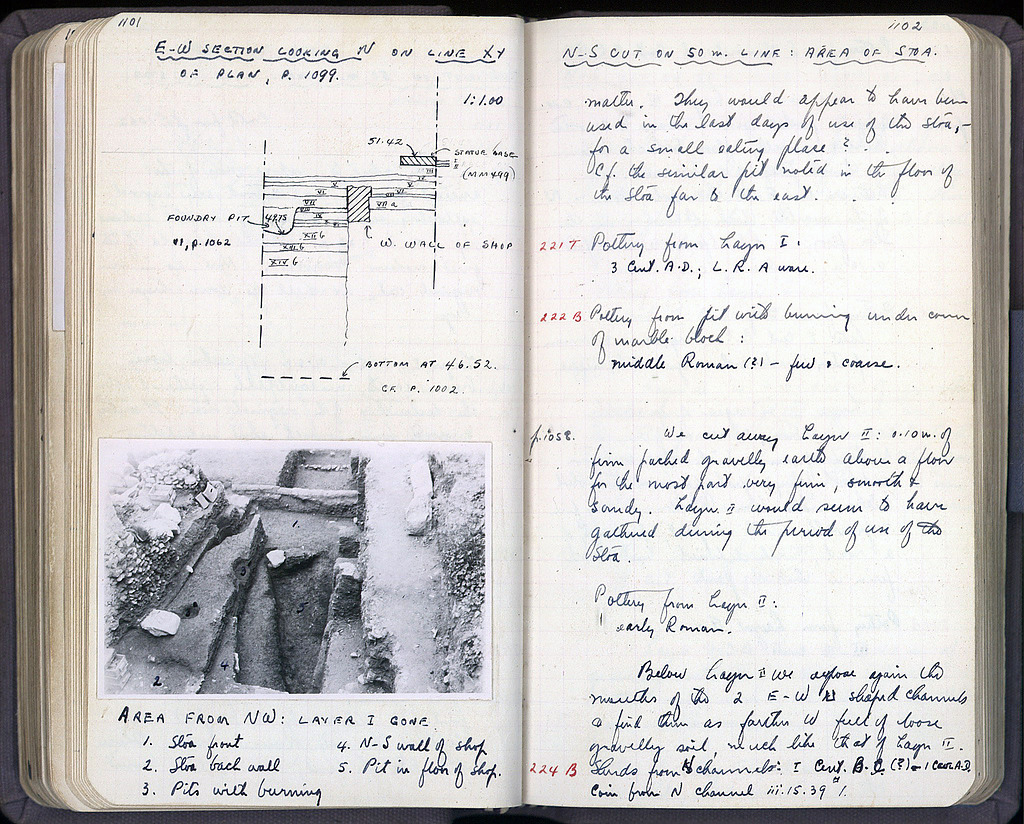 1101
E-W SECTION LOOKING N ON LINE XY
OF PLAN, P. 1099.
1:1.00
51.42
STATUE BASE
I
II
(MM 499)
III
IV
V
VI
VI
VII
VII a
VIII
IX
X
XII b
XIII b
XIV b
FOUNDRY PIT
49.75
VI, P. 1062
W. WALL OF SHOP
BOTTOM AT 46.52.
CF. P. 1002.
1.
2
3
4
5
AREA FROM NW: LAYER I GONE
1. Stoa front
2. Stoa back wall
3. Pits with burning
4. N-S wall of shop
5. Pit in floor of shop.
1102
N-S CUT ON 50 m. LINE: AREA OF STOA.
matter. They would appear to have been
used in the last days of use of the Stoa, -
for a small eating place? . .
Cf. the similar pit noted in the floor of
the Stoa far to the east. . .
221 T Pottery from Layer I:
3 Cent. A.D.; L. R. A ware.
222 B Pottery from pit with burning under corner
of marble block:
middle Roman (?) - few & coarse.
p. 1058. We cut away Layer II: 0.10 m. of
firm packed gravelly earth above a floor
for the most part very firm, smooth &
sandy. Layer II would seem to have
gathered during the period of use of the
Stoa.
Pottery from Layer II:
early Roman.
Below Layer II we expose again the
mouths of the 2 E-W U shaped channels
& find them as farther W full of loose
gravelly soil, much like that of Layer II.
224 B Sherds from channels: I Cent. B.C. (?) - I Cent. A.D.
Coin from N channel iii.15.39 # 1.